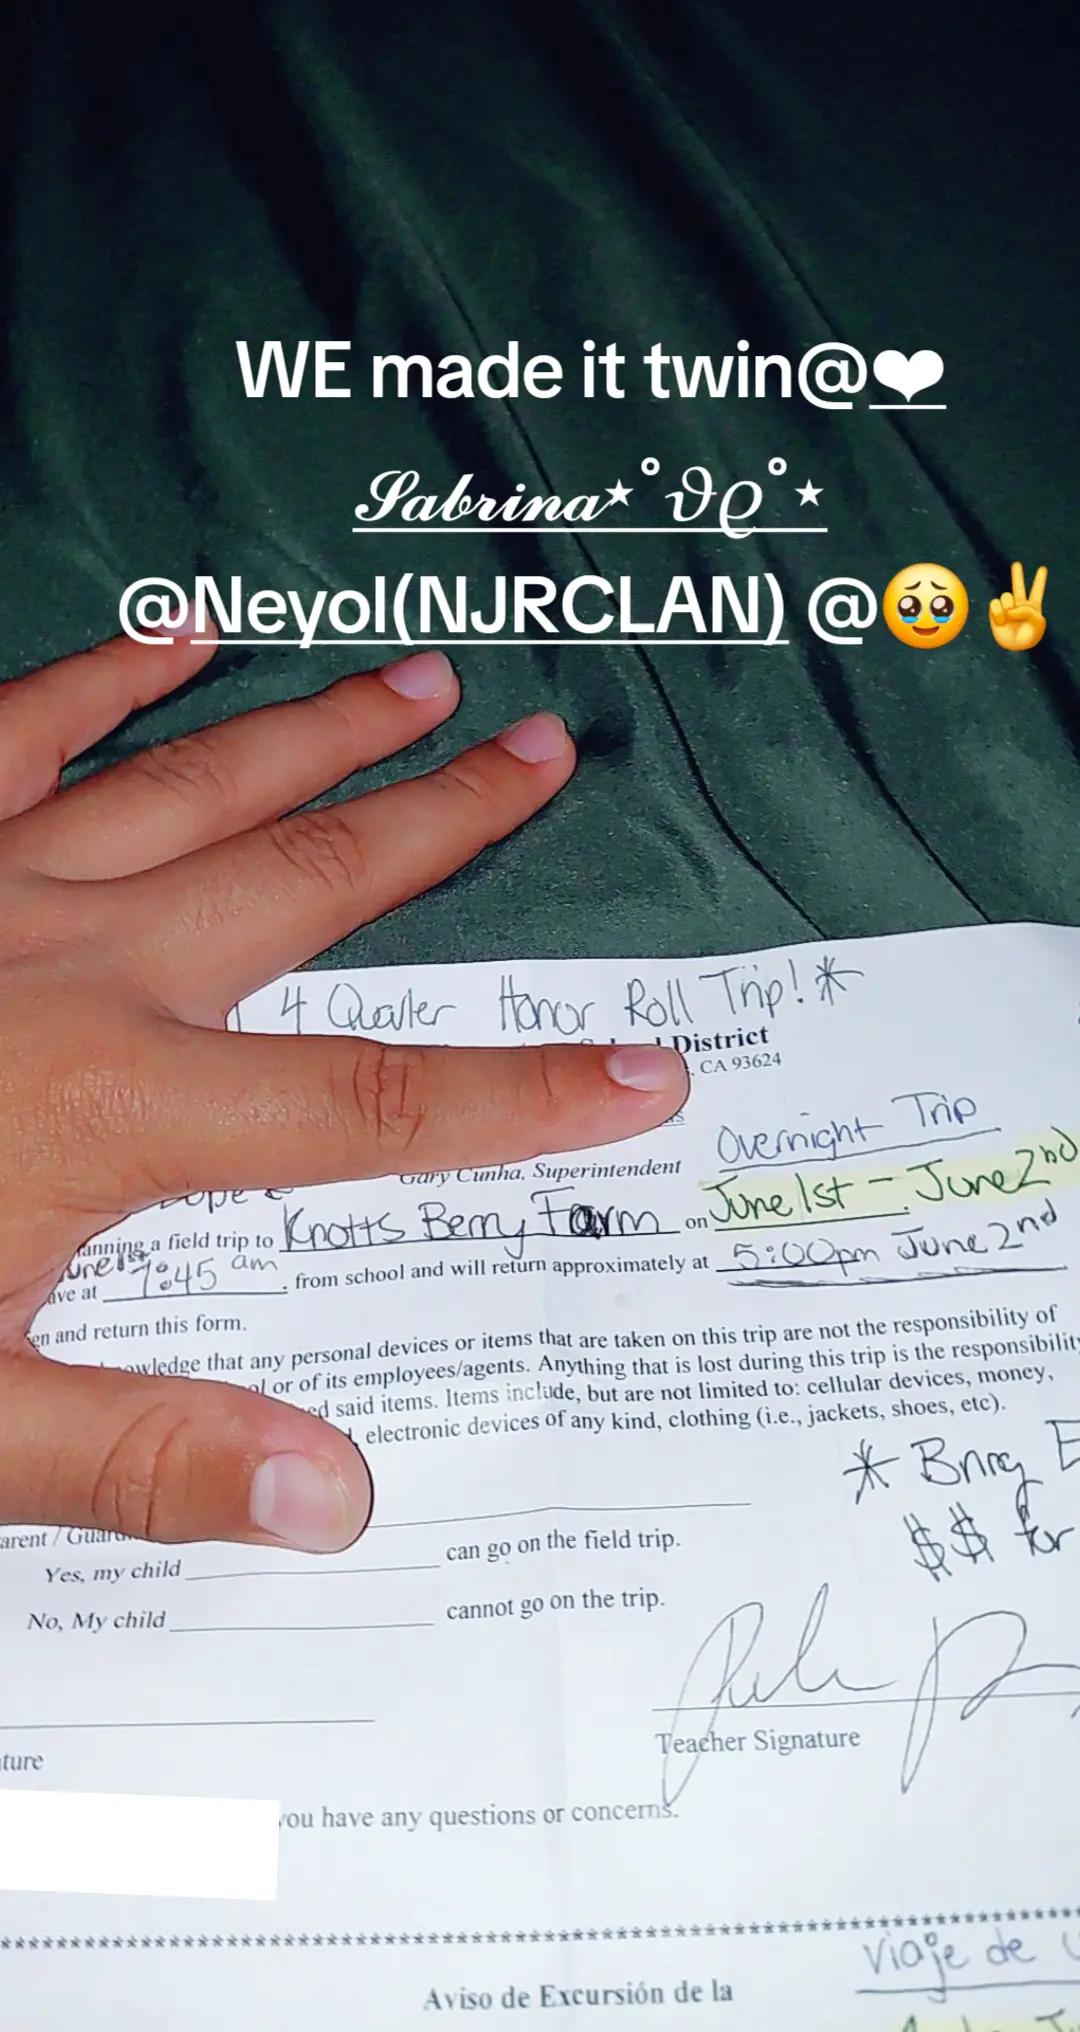 WE made it twin@❤
𝒮𝒶𝒷𝓇𝒾𝓃𝒶⋆˚𝜗𝜚˚⋆
@Neyol(NJRCLAN) @🥹✌
4 Quarter Honor Roll Trip!*
District
, CA 93624
Overnight Trip
Gary Cunha, Superintendent
a field trip to Knotts Berry Farm on June 1st - June 2nd
at 7:45 am from school and will return approximately at 5:00pm June 2nd
and return this form.
that any personal devices or items that are taken on this trip are not the responsibility of
or of its employees/agents. Anything that is lost during this trip is the responsibility
said items. Items include, but are not limited to: cellular devices, money,
electronic devices of any kind, clothing (i.e., jackets, shoes, etc).
* Bring
$$ for
Yes, my child can go on the field trip.
No, My child cannot go on the trip.
Teacher Signature
you have any questions or concerns.
Viaje de
Aviso de Excursión de la